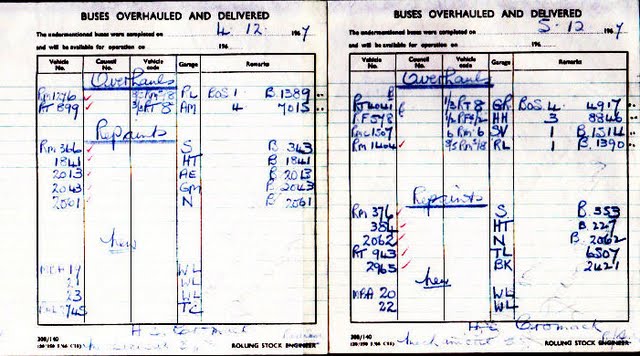 BUSES OVERHAULED AND DELIVERED
The undermentioned buses were completed on 4. 12. 1967
and will be available for operation on 196
Vehicle No. Council No. Vehicle code Garage Remarks
Overhauls
RM 1276 PL BOS 1 B.1389
RT 899 3/3RT8 AM 4 7015
Repaints
RM 366 S B.343
1841 HT B 1841
2013 AE B 2013
2043 GM B 2043
2061 N B 2061
new
MBA 17 WL
21 WL
23 WL
745 TC
308/140
ROLLING STOCK ENGINEER
BUSES OVERHAULED AND DELIVERED
The undermentioned buses were completed on 5. 12 1967
and will be available for operation on 196
Vehicle No. Council No. Vehicle code Garage Remarks
Overhauls
RT 4041 1/3RT8 GR BOS. 4. 4917
RF 578 HH 3 8846
RML 1507 6RM6 SV 1 B.1514
RM 1404 RL 1 B.1390
Repaints
RM 376 S B.353
384 HT B.227
2062 N B.2062
RT 943 TL 6507
2965 BK 2421
new
MBA 20 WL
22 WL
308/140
ROLLING STOCK ENGINEER